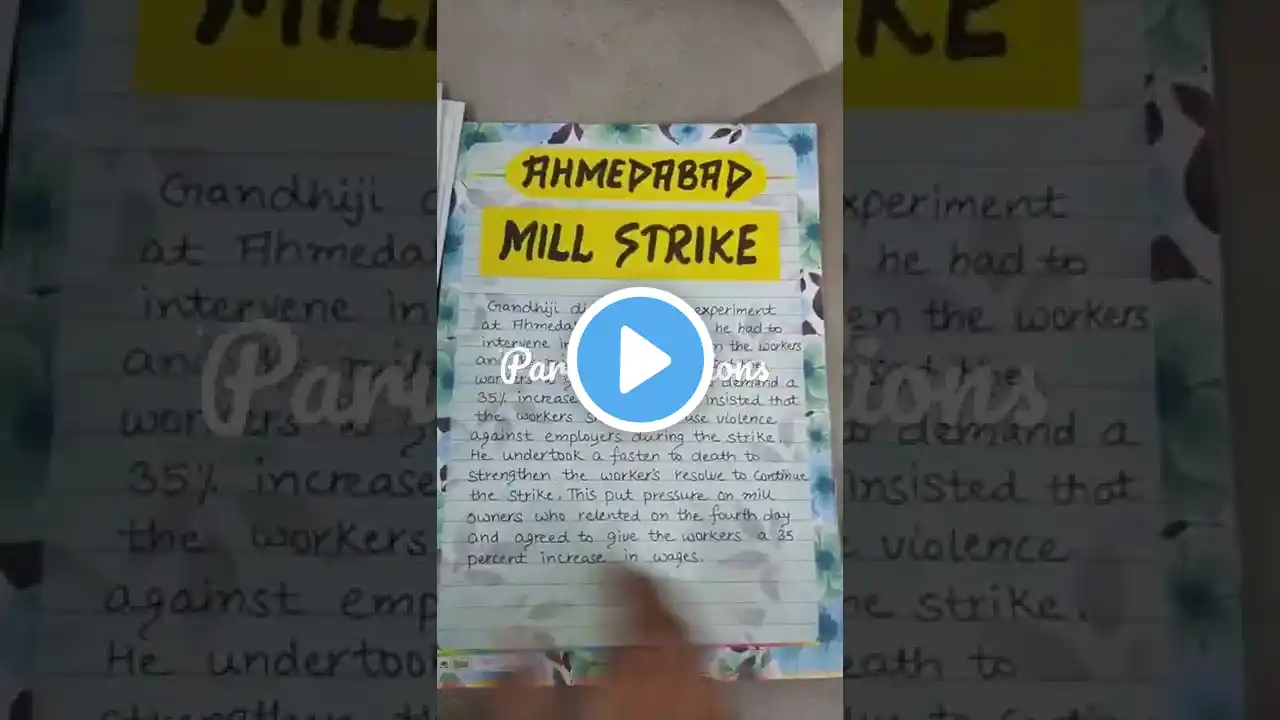 AHMEDABAD
MILL STRIKE
Gandhiji experiment
at he had to
intervene in the workers
and
workers demand a
35% increase insisted that
the workers use violence
against employers during the strike.
He undertook a fasten to death to
strengthen the worker's resolve to continue
the strike. This put pressure on mill
owners who relented on the fourth day
and agreed to give the workers a 35
percent increase in wages.